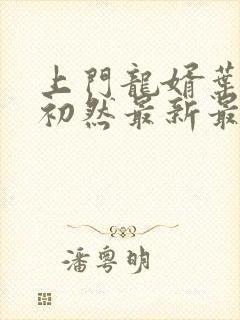 上門龍婿葉
初然最新最
潘粵明